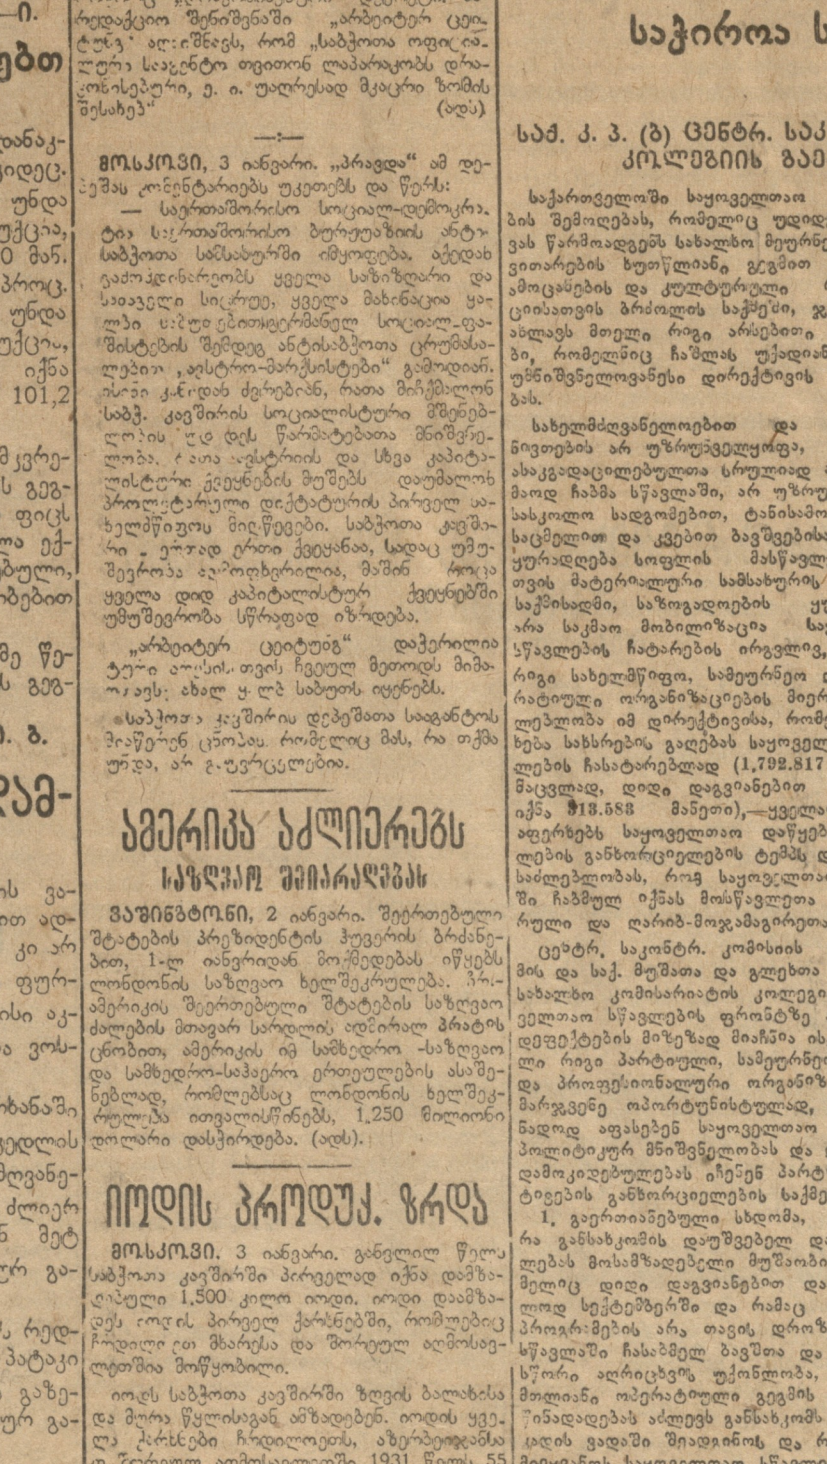 რედაქციო შენიშვნაში „არბეიტერ ცეი-
ტუნგ“ აღნიშნავს, რომ „საბჭოთა ოფიცია-
ლური სააგენტო თვითონ ლაპარაკობს დრა-
კონისებური, ე. ი. უაღრესად მკაცრი ზომის
შესახებ“ (ადს)
მოსკოვი, 3 იანვარი. „პრავდა“ ამ დე-
პეშას კომენტარიებს უკეთებს და წერს:
— საერთაშორისო სოციალ-დემოკრა-
ტია საერთაშორისო ბურჟუაზიის ანტი-
საბჭოთა სამსახურში იმყოფება. აქედან
გამომდინარეობს ყველა საზიზღარი და
საძაგელი სიცრუე, ყველა მახინაცია ყა-
ლბი საბუთებით. გერმანელ სოციალ-ფა-
შისტების შემდეგ ანტისაბჭოთა ცრუმასა-
ლებით „ავსტრო-მარქსისტები“ გამოდიან.
ისინი კანიდან ძვრებიან, რათა მიჩქმალონ
საბჭ. კავშირის სოციალისტური მშენებ-
ლობის უდიდეს წარმატებათა მნიშვნე-
ლობა, რათა ავსტრიის და სხვა კაპიტა-
ლისტური ქვეყნების მუშებს დაუმალონ
პროლეტარული დიქტატურის პირველ სა-
ხელმწიფოს მიღწევები. საბჭოთა კავში-
რი ერთად ერთი ქვეყანაა, სადაც უმუ-
შევრობა აღმოფხვრილია, მაშინ როცა
ყველა დიდ კაპიტალისტურ ქვეყნებში
უმუშევრობა სწრაფად იზრდება.
„არბეიტერ ცეიტუნგ“ დაჭერილია
ტური თვის ჩვეულ მეთოდს მიმა-
რთავს: ახალ ყალბ საბუთს იყენებს.
საბჭოთა კავშირის დეპეშათა სააგენტოს
მიაწერენ ცნობას რომელიც მას, რა თქმა
უნდა, არ გაუვრცელებია.
ამერიკა აძლიერებს
საზღვაო შეიარაღებას
ვაშინგტონი, 2 იანვარი. შეერთებული
შტატების პრეზიდენტის ჰუვერის ბრძანე-
ბით, 1-ლ იანვრიდან მოქმედებას იწყებს
ლონდონის საზღვაო ხელშეკრულება. ჩრ.-
ამერიკის შეერთებული შტატების საზღვაო
ძალების მთავარ სარდლის ადმირალ პრატის
ცნობით, ამერიკის იმ სამხედრო -საზღვაო
და სამხედრო-საჰაერო ერთეულების ასაშე-
ნებლად, რომლებსაც ლონდონის ხელშეკ-
რულება ითვალისწინებს, 1.250 მილიონი
დოლარი დასჭირდება. (ადს).
იოდის პროდუქ. ზრდა
მოსკოვი. 3 იანვარი. განვლილ წელს
საბჭოთა კავშირში პირველად იქნა დამზა-
დებული 1.500 კილო იოდი. იოდი დაამზა-
დეს იოდის პირველ ქარხნებში, რომლებიც
ჩრდილოეთ მხარესა და შორეულ აღმოსავ-
ლეთშია მოწყობილი.
იოდს საბჭოთა კავშირში ზღვის ბალახისა
და მურა წყლისაგან ამზადებენ. იოდის ყვე-
ლა ქარხნები ჩრდილოეთს, აზერბეიჯანსა
1931 წელს 55
საჭიროა
საქ. კ. პ. (ბ) ცენტრ. საკ
კოლეგიის გაე
საქართველოში საყოველთაო
ბის შემოღებას, რომელიც უდიდ
ვას წარმოადგენს სახალხო მეურნე
ვითარების ხუთწლიანი გეგმით
ამოცანების და კულტურული
ციისათვის ბრძოლის საქმეში, ჯ
ახლავს მთელი რიგი არსებითი
ბი, რომელნიც ჩაშლას უქადიან
უმნიშვნელოვანესი დირექტივის
ბას.
სახელმძღვანელოებით და
ნივთების არ უზრუნველყოფა,
ასაკგადაცილებულთა სრულიად
მაოდ ჩაბმა სწავლაში, არ უზრუ
სასკოლო სადგომებით, ტანისამო
საცმელით და კვებით ბავშვებისა
ყურადღება სოფლის მასწავლ
თვის მატერიალური სამსახურის
საქმისადმი, საზოგადოების
არა საკმაო მობილიზაცია სა
სწავლების ჩატარების ირგვლივ,
რიგი სახელმწიფო, სამეურნეო
რატიული ორგანიზაციების მიერ
ლებლობა იმ დირექტივისა, რომე
ხება სახსრების გაღებას საყოველ
ლების ჩასატარებლად (1,792.817
მაცვლად, დიდი დაგვიანებით
იქნა 913.583 მანეთი),—ყველა
აფერხებს საყოველთაო დაწყებ
ლების განხორციელების ტემპს
საძლებლობას, რომ საყოველთა
ში ჩაბმულ იქნას მოსწავლეთა
რული და ღარიბ-მოჯამაგირეთა
ცენტრ. საკონტრ. კომისიის
მის და საქ. მუშათა და გლეხთა
სახალხო კომისარიატის კოლეგი
ველთაო სწავლების ფრონტზე
დეფექტების მიზეზად მიაჩნია ის
ლი რიგი პარტიული, სამეურნეო
და პროფესიონალური ორგანიზ
მარჯვენე ოპორტუნისტულად,
ნადოდ აფასებენ საყოველთაო
პოლიტიკურ მნიშვნელობას და
დამოკიდებულებას იჩენენ პარტ
ტივების განხორციელების საქმე
1. გაერთიანებული სხდომა,
რა განსახკომის დაუშვებელ და
ლებას მოსამზადებელი მუშაობი
მელიც დიდი დაგვიანებით და
ლოდ სექტემბერში და რამაც
პროგრამების არა თავის დროზ
სწავლაში ჩასაბმელ ბავშთა და
სწორი აღრიცხვის უქონლობა,
მთლიანი ოპერატიული გეგმის
წინადადებას აძლევს განსახკომს
ვადაში შეადგინოს და
ი.
ებთ
დანაკ-
კიდეც.
უნდა
უქცია,
0 მან.
პროც.
უნდა
უქცია,
იქნა
101,2
მკვრე-
ს გეგ-
ფიცს
ლა ექ-
ებული,
ობებით
მე წე-
ს გეგ-
. ბ.
დამ-
ის ვა-
ით ად-
კი არ
ფურ-
ისი აკ-
ა ვოს-
იხანაში
ჯედლის
მღვანე-
ძლიერ
მეტ
ურ გა-
ს რედ-
პატაკი
გაზე-
ურ გა-